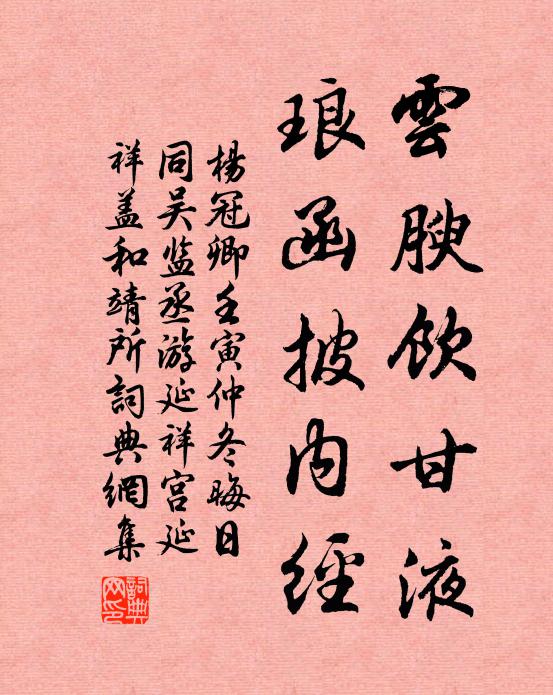 雲腴飲甘液
琅函披内經
楊冠卿壬寅仲冬晦日
同吴监丞游延祥宫延
祥盖和靖所詞典網集
詞典
网印